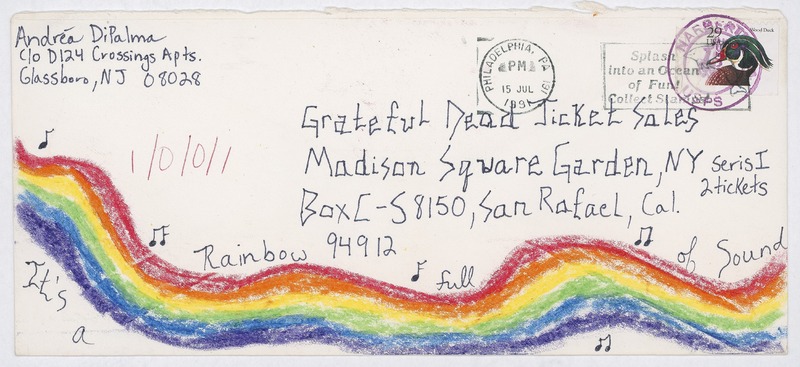 Andréa DiPalma
C/o D124 Crossings Apts.
Glassboro, NJ 08028
PHILADELPHIA, PA 191
PM
15 JUL
1991
Splash
into an Ocean
of Fun!
Collect Stamps
29
USA
Wood Duck
NARBERTH
USPS
1/0/0/1
Grateful Dead Ticket Sales
Madison Square Garden, NY
Box C-S 8150, San Rafael, Cal.
94912
seris I
2 tickets
It's
a
Rainbow
full
of Sound